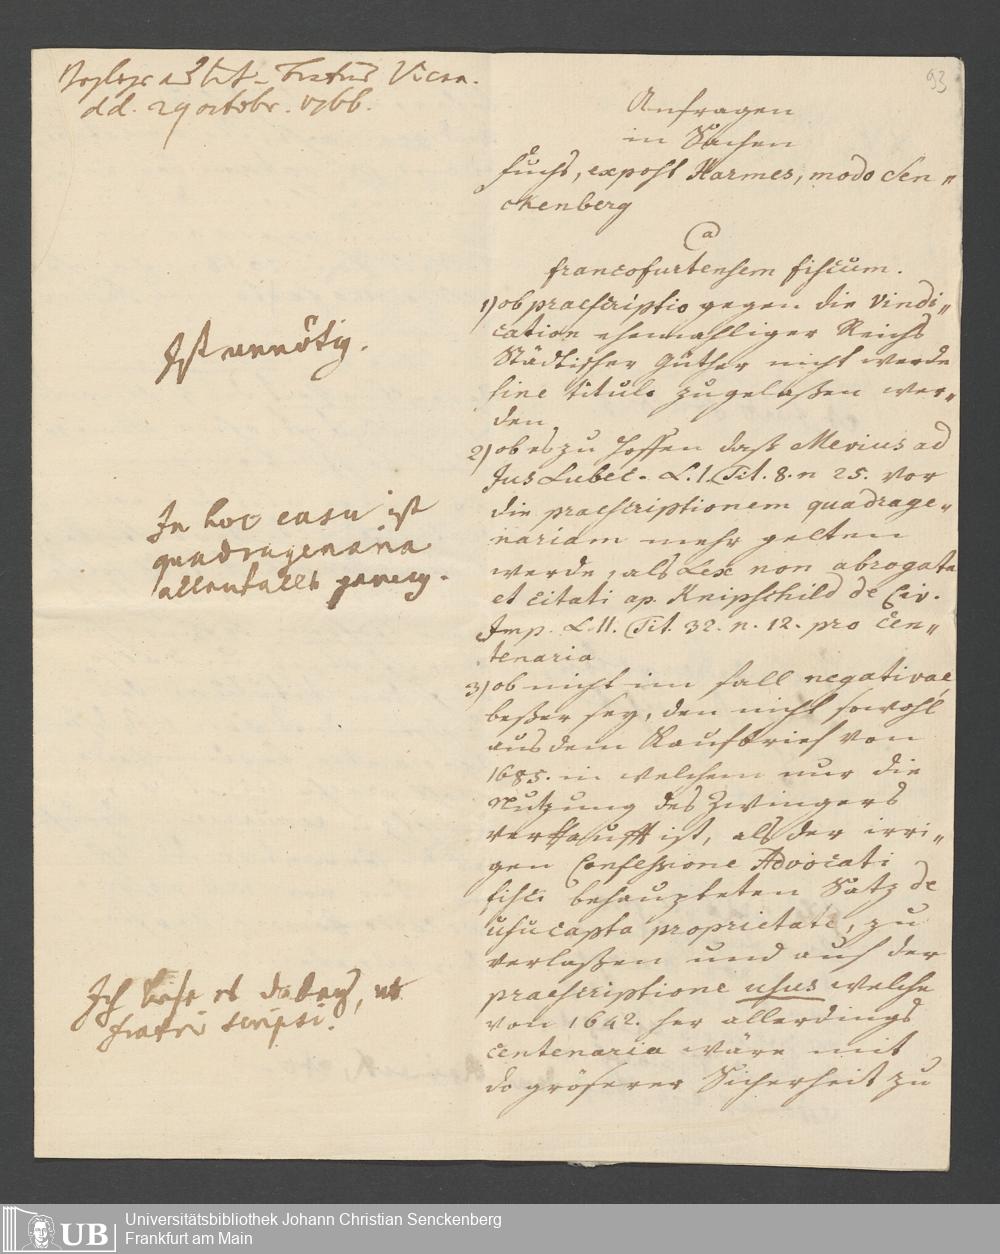 dd. 29 octobr. 1766.
93
Anfragen
in Sachen
Fuchs, expost Harmes, modo Sen„
ckenberg
a
francofurtensem fiscum.
1) ob praescriptio gegen die Vindi„
cation ehemahliger Reichs
Städtischer Güther nicht werde
sine titulo zugelaßen wer„
den
Ist unnötig.
2) ob es zu hoffen daß Mevius ad
Jus Lubec. L. I. Tit. 8. n 25. vor
die praescriptionem quadrage„
nariam mehr gelten
werde, als Lex non abrogata
et citati ap. Knipschild de Civ.
Imp. L. II. Tit. 32. n. 12. pro cen„
tenaria
In hoc casu ist
quadragenaria
allenfalls genug.
3) ob nicht im fall negativae
beßer sey, den nicht sowohl
aus dem Kaufbrief von
1685. in welchem nur die
Nutzung des Zwingers
verkaufft ist, als der irri„
gen Confessione Advocati
fisci behaupteten Satz de
usucapta proprietate, zu
verlaßen und auf der
praescriptione usus welche
von 1642. her allerdings
centenaria wäre mit
do größerer Sicherheit zu
Ich laße es dabey, ut
fratri scripsi.
UB
Universitätsbibliothek Johann Christian Senckenberg
Frankfurt am Main